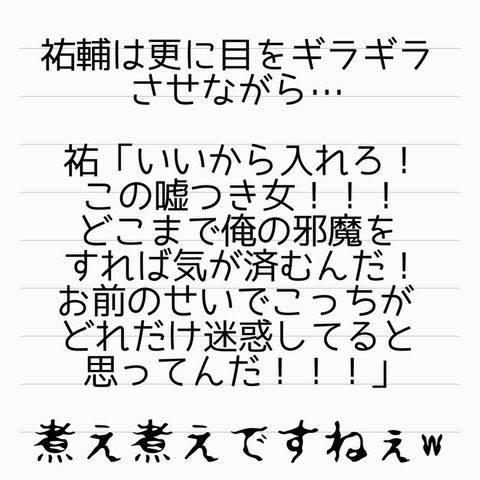 祐輔は更に目をギラギラ
させながら…
祐「いいから入れろ！
この嘘つき女！！！
どこまで俺の邪魔を
すれば気が済むんだ！
お前のせいでこっちが
どれだけ迷惑してると
思ってんだ！！！」
煮え煮えですねぇw